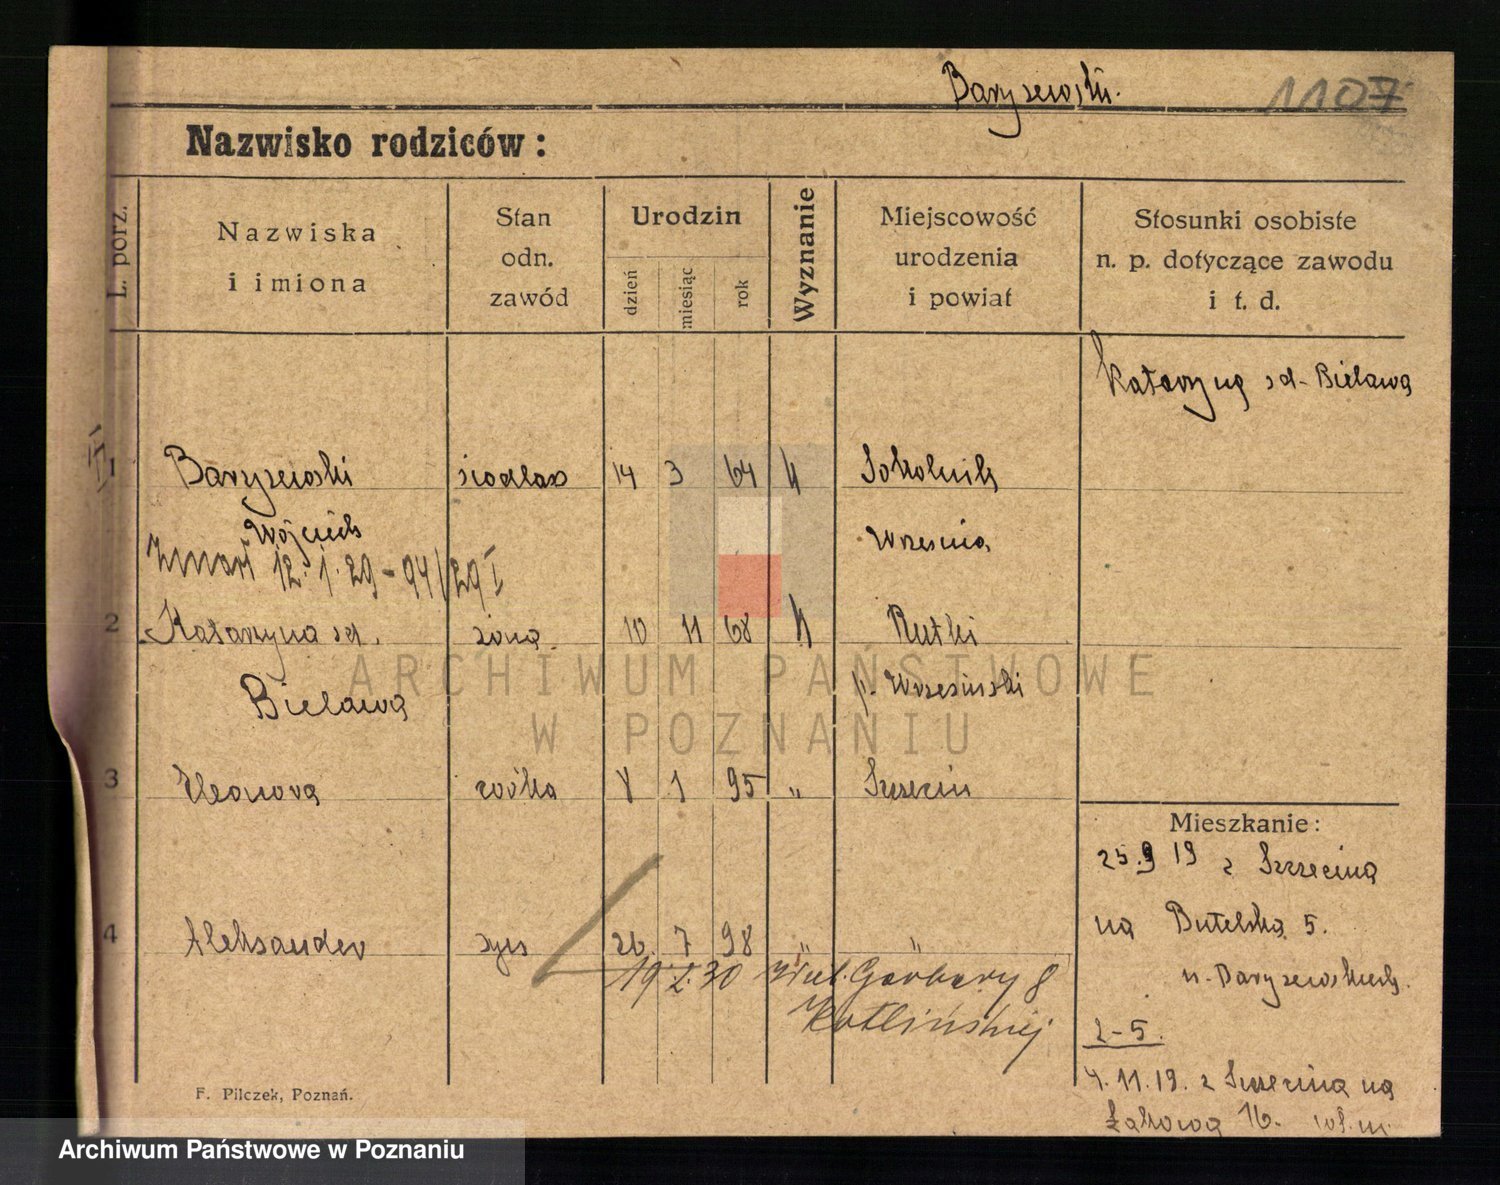 Baryszewski.
1107
Nazwisko rodziców:
L. porz.
Nazwiska
i imiona
Stan
odn.
zawód
Urodzin
dzień
miesiąc
rok
Wyznanie
Miejscowość
urodzenia
i powiat
Stosunki osobiste
n. p. dotyczące zawodu
i t. d.
Katarzyna zd- Bielawa
1 Baryszewski siodlarz 14 3 64 k Sokolnik
Wojciech Września
Zmarł 12.1.29-94/29 I
2 Katarzyna zd. żona. 10 11 68 k Rutki
Bielawa p. Wrzesiński
3 Eleonora córka 8 1 95 " Szczecin
Mieszkanie:
25.9 19 z Szczecina
na Butelska 5.
u. Baryszewskich.
4 Aleksander syn 26. 7 98 " "
19.2.30 Wiel. Garbary 8
Kotlińskiej
2-5.
4.11.19. z Szczecina na
Łąkowa 16.
F. Pilczek, Poznań.
ARCHIWUM PAŃSTWOWE
W POZNANIU
Archiwum Państwowe w Poznaniu